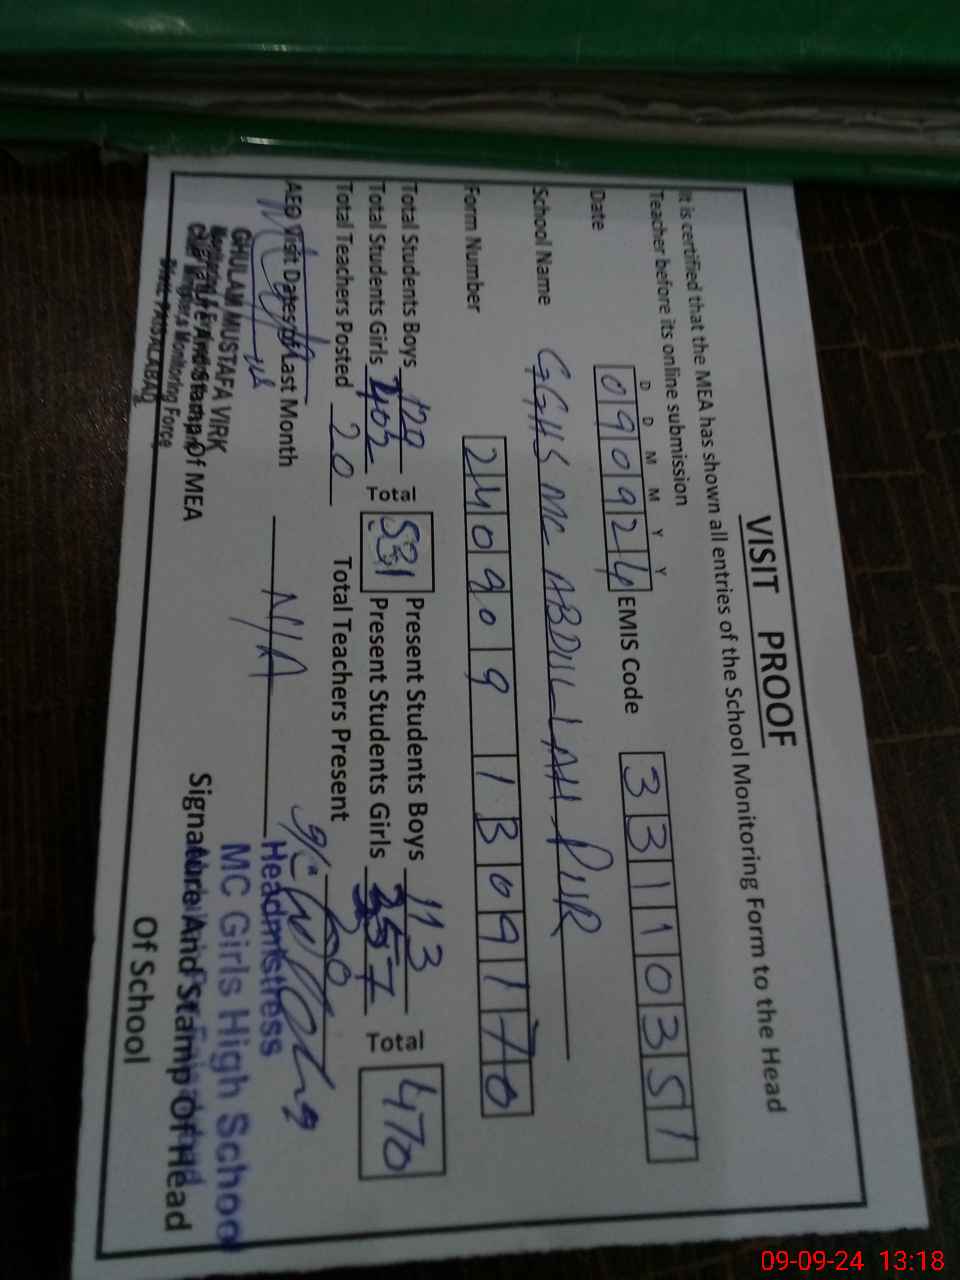 VISIT PROOF
It is certified that the MEA has shown all entries of the School Monitoring Form to the Head
Teacher before its online submission
D D M M Y Y
Date 090924 EMIS Code 33110351
School Name GGHS MC ABDULLAH PUR
Form Number 240909 1309170
Total Students Boys Total Present Students Boys 113 Total
Total Students Girls 402 531 Present Students Girls 357 470
Total Teachers Posted 20 Total Teachers Present 20
AEO Visit Dates of Last Month N/A
GHULAM MUSTAFA VIRK
Monitoring & Evaluation
Chief Minister's Monitoring Force
FAISALABAD
Signature And Stamp Of MEA
Headmistress
MC Girls High School
Signature And Stamp Of Head
Of School
09-09-24 13:18